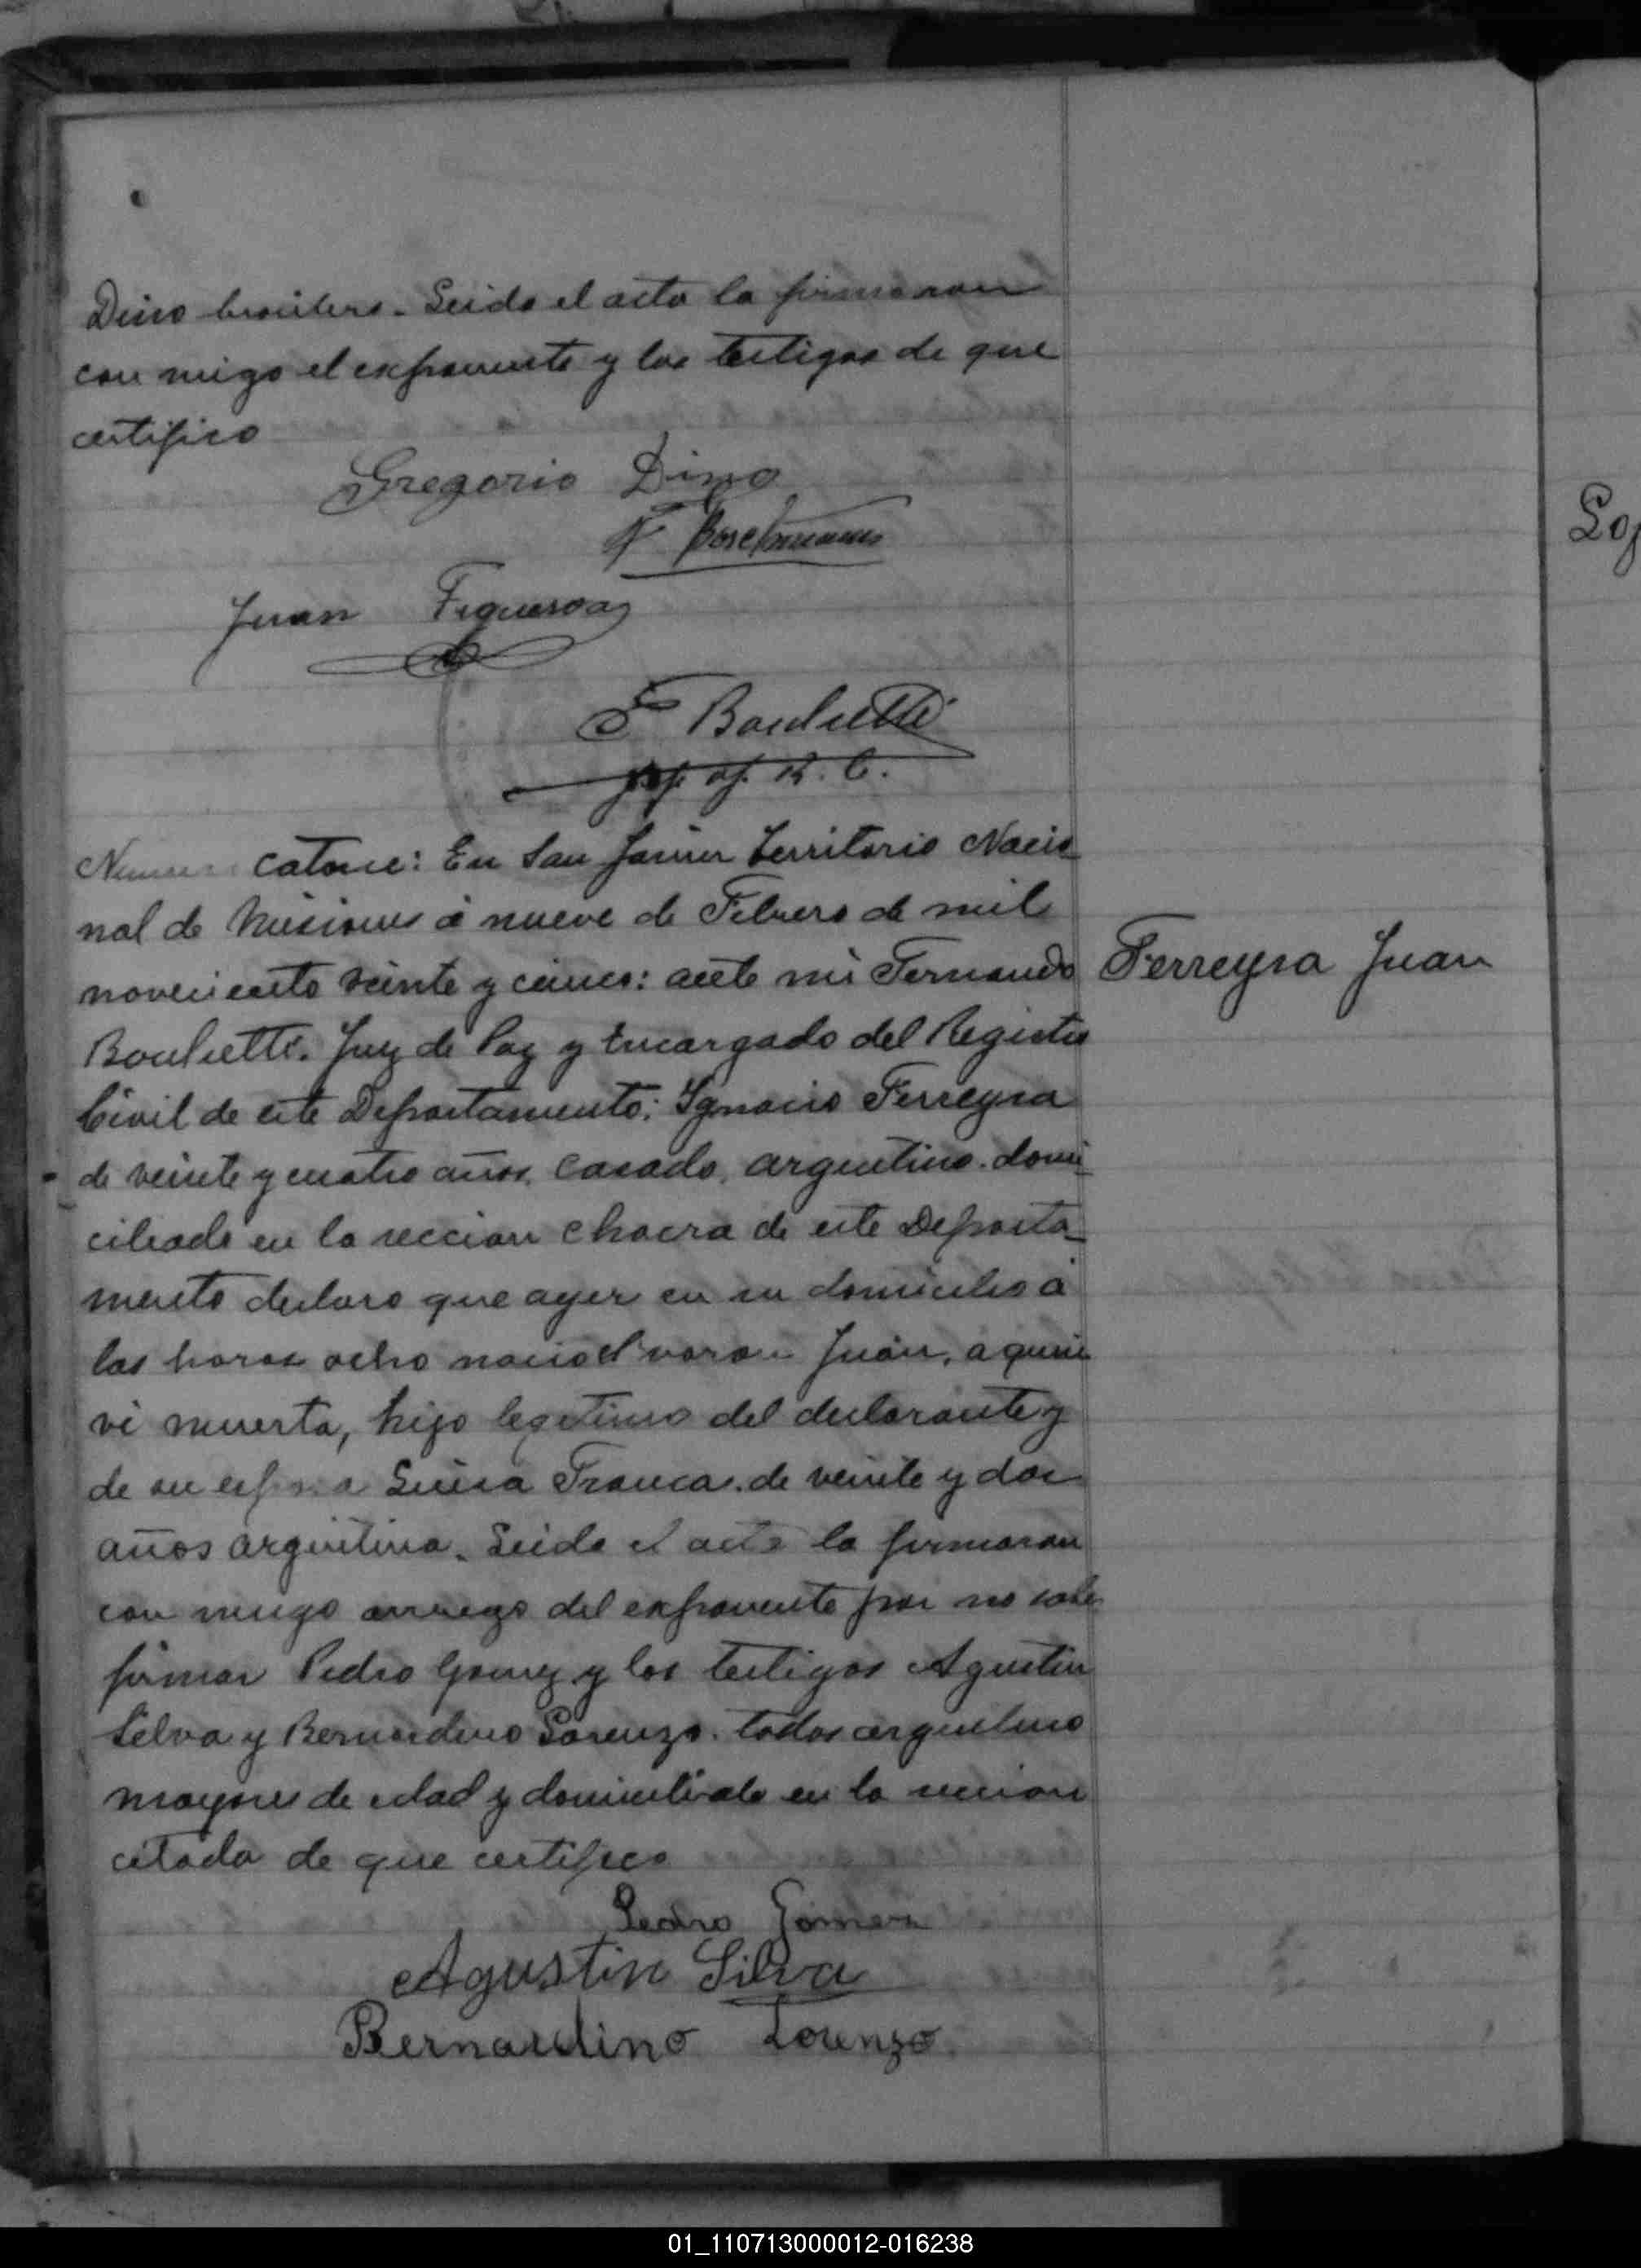 Dino brasilero. Leido el acta la firmaron
con migo el exponente y los testigos de que
certifico
Gregorio Dino
Juan Figueroa
F Boulietti
R. C.
Numero catorce: En San Javier Territorio Nacio
nal de Misiones á nueve de Febrero de mil
noveciento veinte y cinco: ante mi Fernando
Boulietti. Juez de Paz y Encargado del Registro
Civil de este Departamento: Ignacio Ferreyra
de veinte y cuatro años, casado, argentino. domi
ciliado en la seccion chacra de este Departa
mento declaro que ayer en su domicilio á
las horas ocho nacio el varon Juan, a quien
vi muerta, hijo legitimo del declarante y
de su esposa Luisa Franca. de veinte y dos
años argentina. Leido el acta la firmaron
con migo arruego del exponente por no saber
firmar Pedro Gomez y los testigos Agustin
Silva y Bernardino Lorenzo. todos argentino
mayores de edad y domiciliado en la seccion
citada de que certifico
Pedro Gomez
Agustin Silva
Bernardino Lorenzo
Ferreyra Juan
01_110713000012-016238